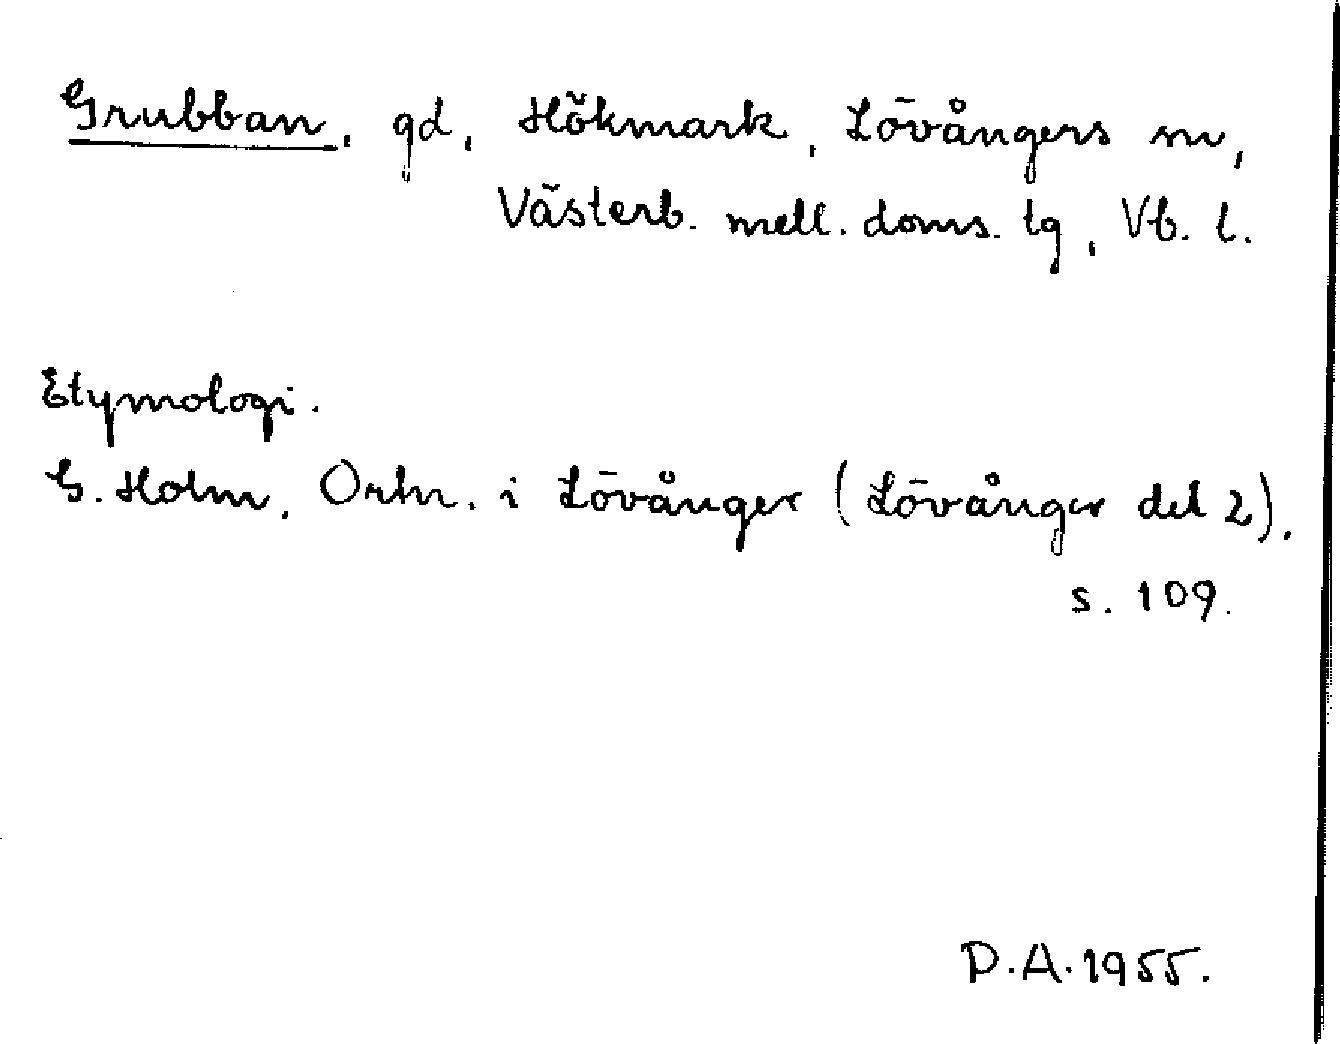 Grubban, gd, Hökmark, Lövångers sn,
Västerb. mell. doms. tg, Vb. l.
Etymologi.
G. Holm, Ortn. i Lövånger (Lövånger del 2),
s. 109.
D.A. 1955.